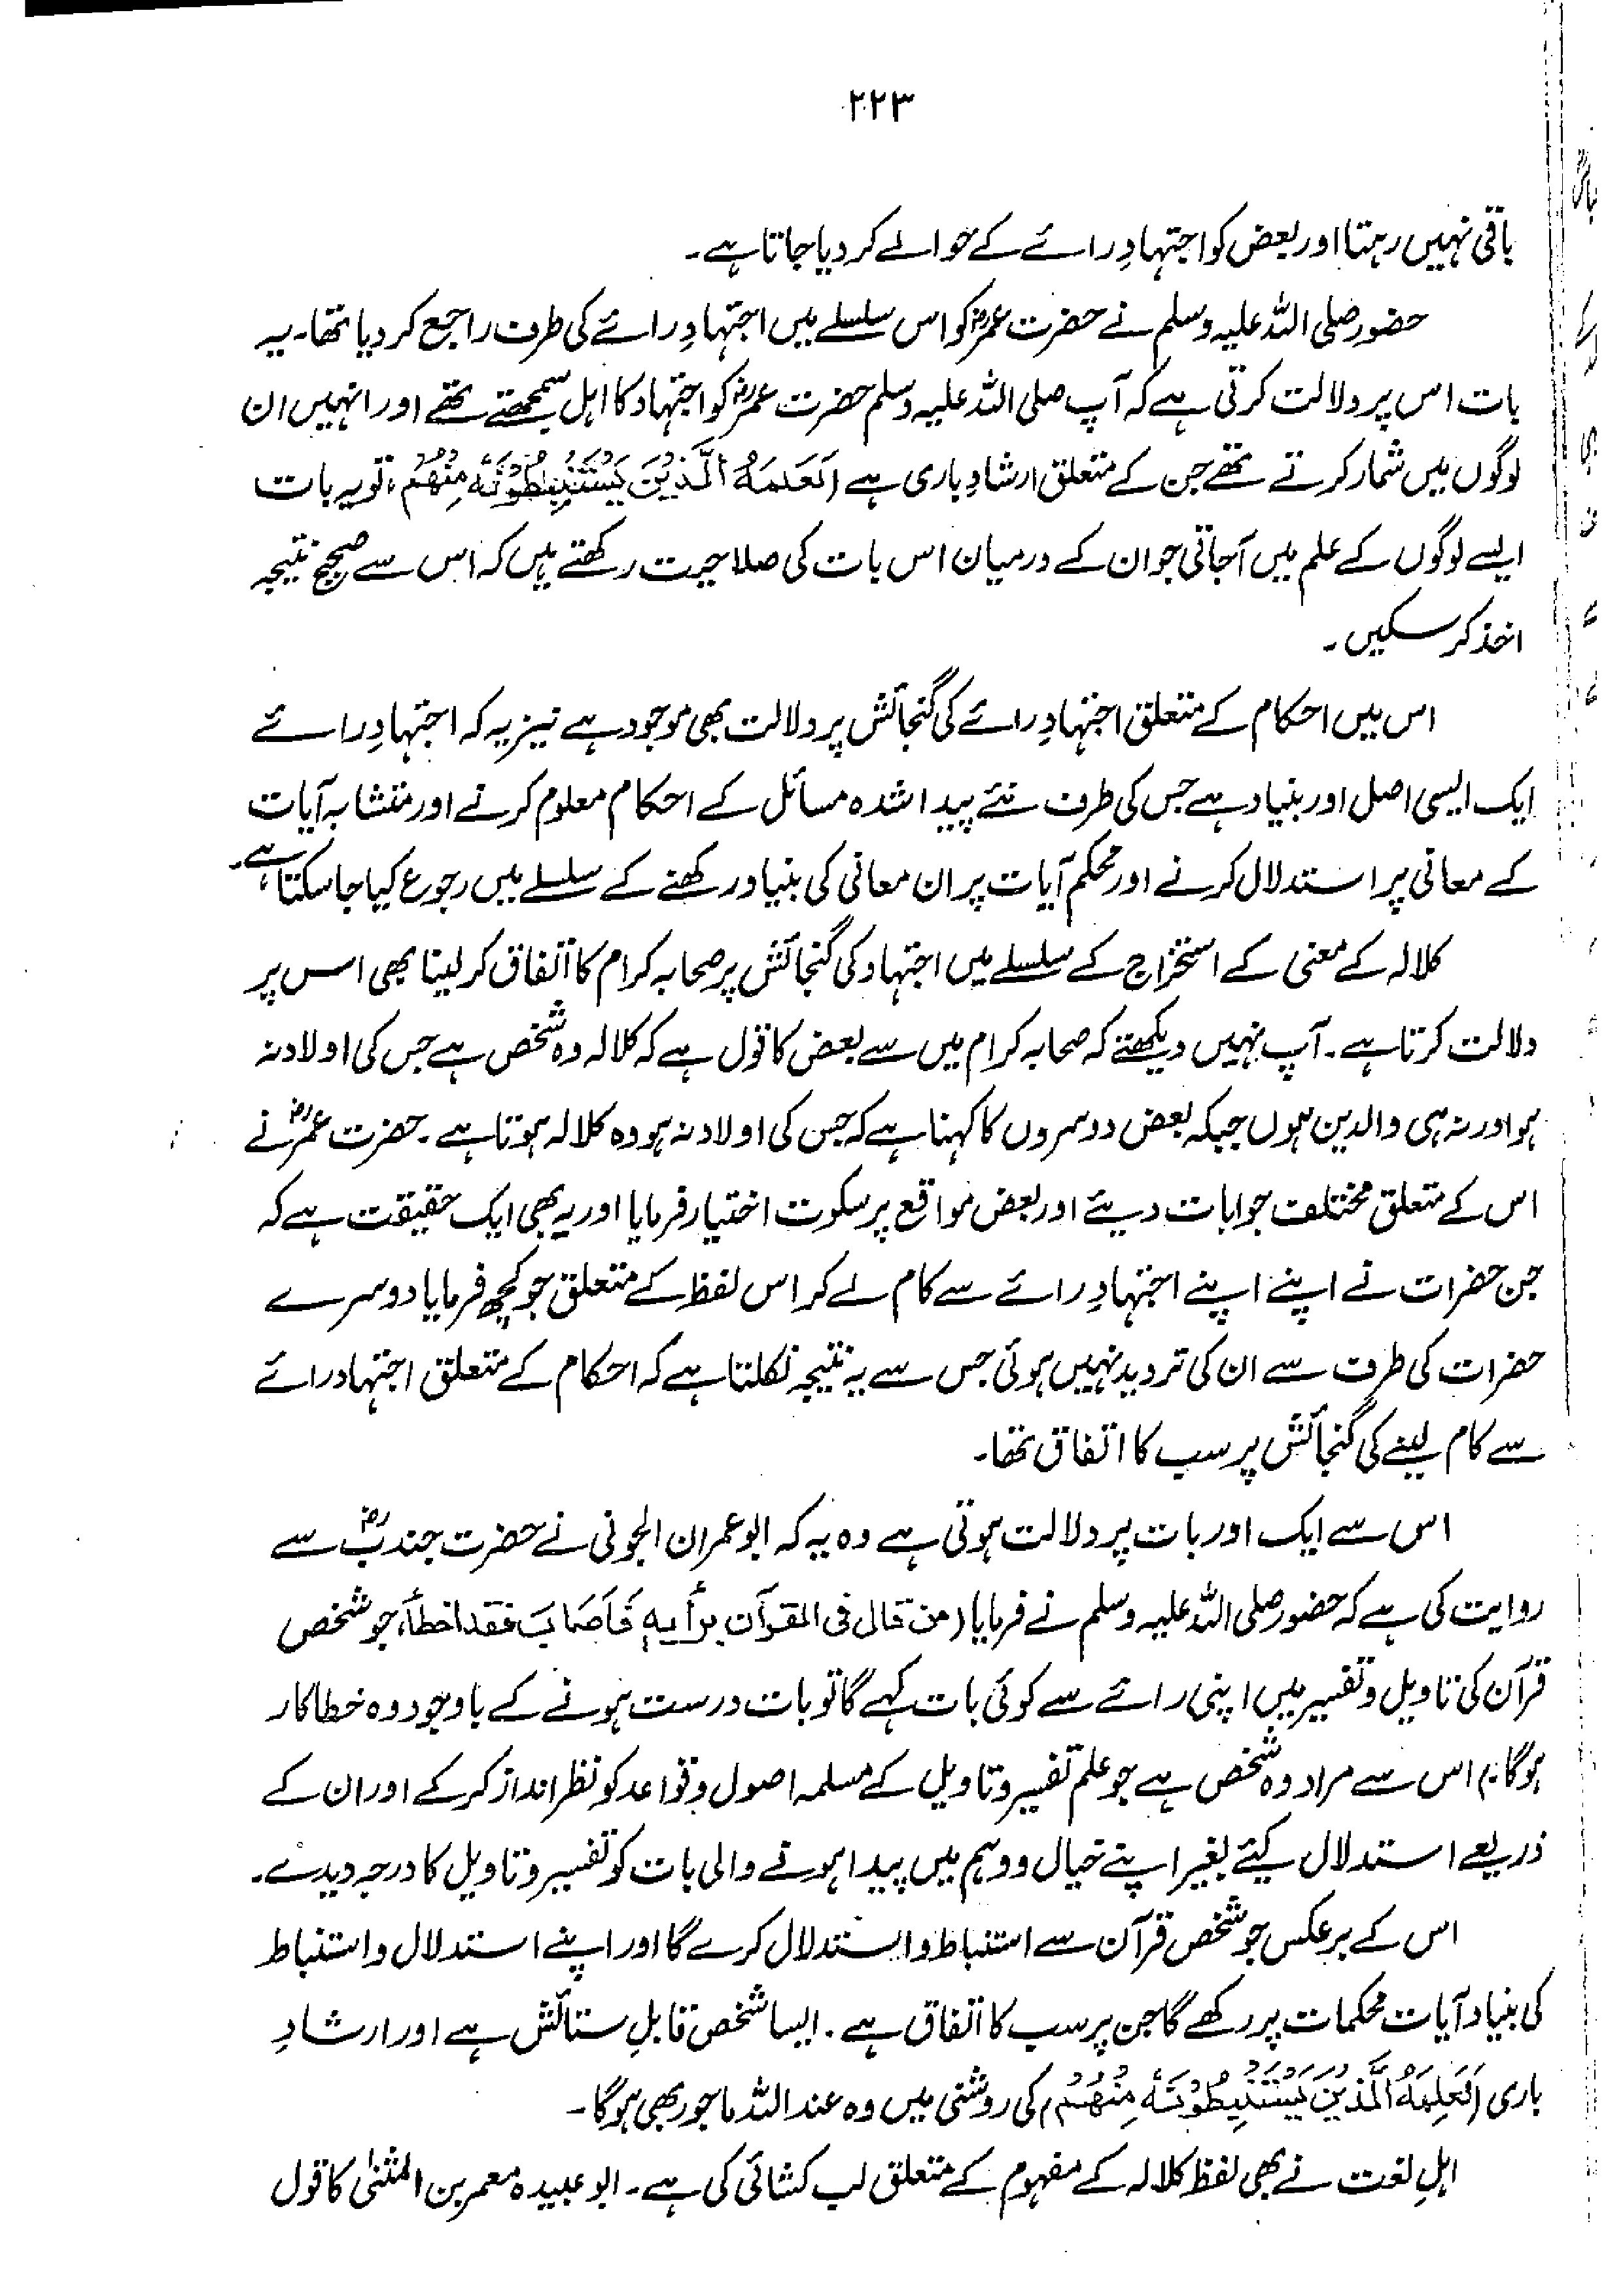 ۲۲۳
باقی نہیں رہتا اور بعض کو اجتہادِ رائے کے حوالے کر دیا جاتا ہے۔
حضور صلی اللہ علیہ وسلم نے حضرت عمرؓ کو اس سلسلے میں اجتہادِ رائے کی طرف راجع کر دیا تھا۔ یہ
بات اس پر دلالت کرتی ہے کہ آپ صلی اللہ علیہ وسلم حضرت عمرؓ کو اجتہاد کا اہل سمجھتے تھے اور انہیں ان
لوگوں میں شمار کرتے تھے جن کے متعلق ارشادِ باری ہے (لَعَلِمَهُ الَّذِيْنَ يَسْتَنْبِطُوْنَهٗ مِنْهُمْ، تو یہ بات
ایسے لوگوں کے علم میں آجاتی جو ان کے درمیان اس بات کی صلاحیت رکھتے ہیں کہ اس سے صحیح نتیجہ
اخذ کر سکیں۔
اس میں احکام کے متعلق اجتہادِ رائے کی گنجائش پر دلالت بھی موجود ہے نیز یہ کہ اجتہادِ رائے
ایک ایسی اصل اور بنیاد ہے جس کی طرف نئے پیدا شدہ مسائل کے احکام معلوم کرنے اور متشابہ آیات
کے معانی پر استدلال کرنے اور محکم آیات پر ان معانی کی بنیاد رکھنے کے سلسلے میں رجوع کیا جا سکتا ہے۔
کلالہ کے معنی کے استخراج کے سلسلے میں اجتہاد کی گنجائش پر صحابہ کرام کا اتفاق کر لینا بھی اس پر
دلالت کرتا ہے۔ آپ نہیں دیکھتے کہ صحابہ کرام میں سے بعض کا قول ہے کہ کلالہ وہ شخص ہے جس کی اولاد نہ
ہو اور نہ ہی والدین ہوں جبکہ بعض دوسروں کا کہنا ہے کہ جس کی اولاد نہ ہو وہ کلالہ ہوتا ہے۔ حضرت عمرؓ نے
اس کے متعلق مختلف جوابات دیئے اور بعض مواقع پر سکوت اختیار فرمایا اور یہ بھی ایک حقیقت ہے کہ
جن حضرات نے اپنے اپنے اجتہادِ رائے سے کام لے کر اس لفظ کے متعلق جو کچھ فرمایا دوسرے
حضرات کی طرف سے ان کی تردید نہیں ہوئی جس سے یہ نتیجہ نکلتا ہے کہ احکام کے متعلق اجتہاد رائے
سے کام لینے کی گنجائش پر سب کا اتفاق تھا۔
اس سے ایک اور بات پر دلالت ہوتی ہے وہ یہ کہ ابو عمران الجونی نے حضرت جندبؓ سے
روایت کی ہے کہ حضور صلی اللہ علیہ وسلم نے فرمایا (من قال فی القرآن برأیہٖ فَاَصَابَ فقد اخطأ، جو شخص
قرآن کی تاویل و تفسیر میں اپنی رائے سے کوئی بات کہے گا تو بات درست ہونے کے باوجود وہ خطا کار
ہوگا) اس سے مراد وہ شخص ہے جو علم تفسیر و تاویل کے مسلمہ اصول و قواعد کو نظر انداز کر کے اور ان کے
ذریعے استدلال کیئے بغیر اپنے خیال و وہم میں پیدا ہونے والی بات کو تفسیر و تاویل کا درجہ دیدے۔
اس کے برعکس جو شخص قرآن سے استنباط و استدلال کرے گا اور اپنے استدلال و استنباط
کی بنیاد آیات محکمات پر رکھے گا جن پر سب کا اتفاق ہے۔ ایسا شخص قابلِ ستائش ہے اور ارشادِ
باری (لَعَلِمَهُ الَّذِيْنَ يَسْتَنْبِطُوْنَهٗ مِنْهُمْ) کی روشنی میں وہ عند اللہ ماجور بھی ہوگا۔
اہلِ لغت نے بھی لفظ کلالہ کے مفہوم کے متعلق لب کشائی کی ہے۔ ابو عبیدہ معمر بن المثنیٰ کا قول